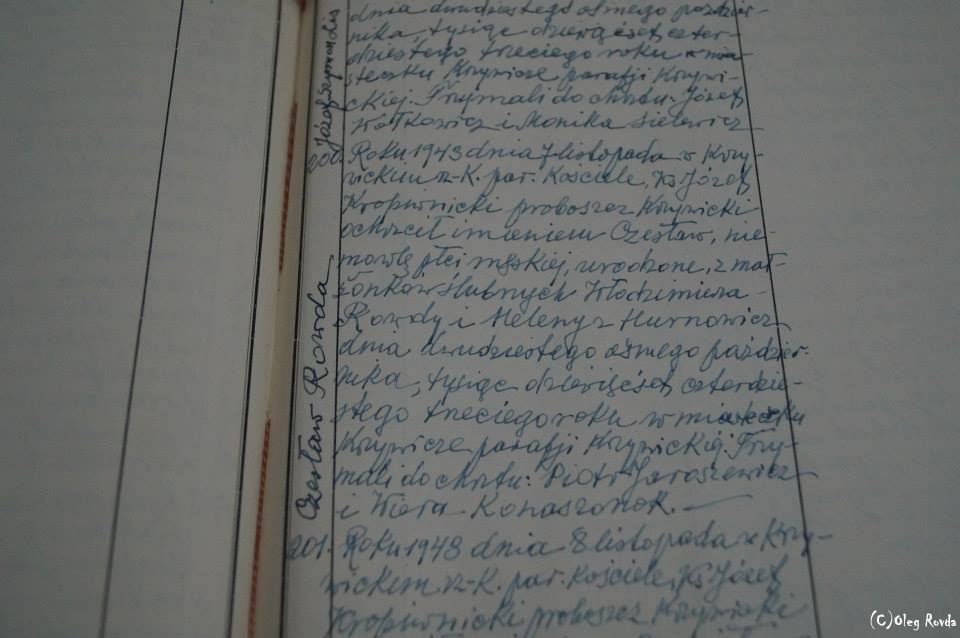 dnia dwudziestego ósmego paździer-
nika, tysiąc dziewięćset czter-
dziestego trzeciego roku w mia-
steczku Krzywicze parafji Krzywi-
ckiej. Trzymali do chrztu: Józef
Wołkowicz i Monika Sielewicz
200.
Roku 1943 dnia 7 listopada w Krzy-
wickim rz-K. par. Kościele, Ks Józef
Kropiwnicki proboszcz Krzywicki
ochrzcił imieniem Czesław, nie-
mowlę płci męskiej, urodzone, z mał-
żonków ślubnych Włodzimierza
Rowdy i Heleny z Hurnowicz
dnia dwudziestego ósmego paździer-
nika, tysiąc dziewięćset czterdzie-
stego trzeciego roku w miasteczku
Krzywicze parafji Krzywickiej. Trzy-
mali do chrztu: Piotr Jaroszewicz
i Wiera Konaszonok.
Czesław Rowda
201. Roku 1943 dnia 8 listopada w Krzy-
wickiem rz-K. par. Kościele, Ks Józef
Kropiwnicki proboszcz Krzywicki
(C)Oleg Rovda